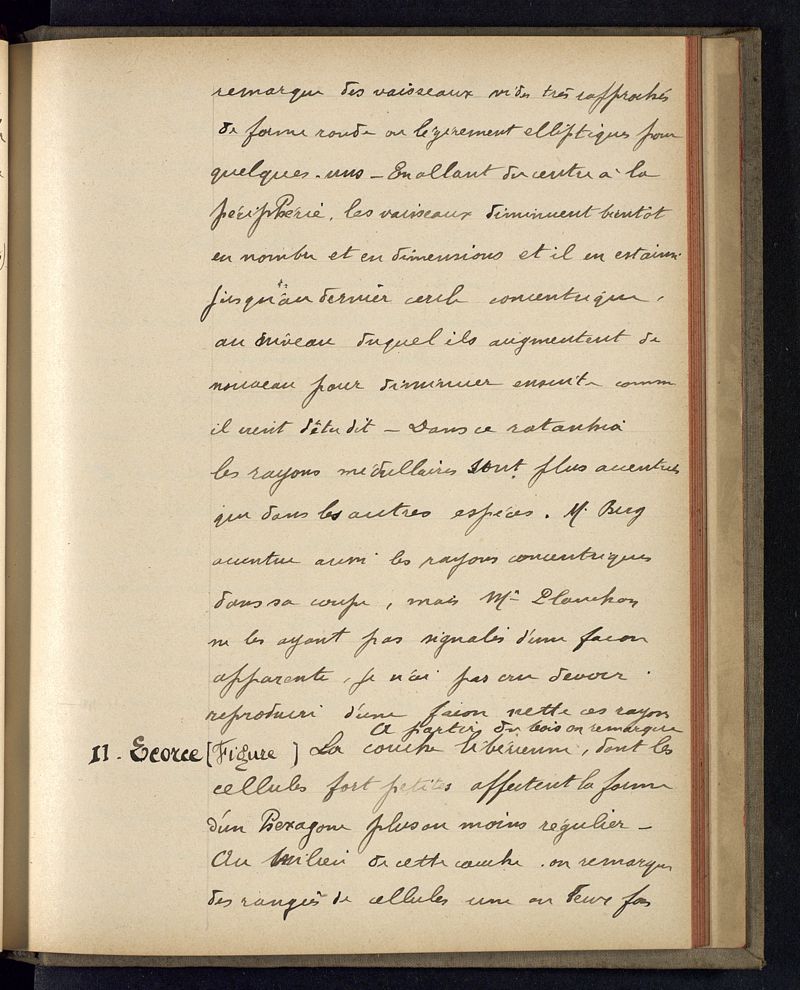 remarque des vaisseaux vides très rapprochés
de forme ronde ou légèrement elliptiques pour
quelques-uns — En allant du centre à la
périphérie, les vaisseaux diminuent bientôt
en nombre et en dimensions et il en est ainsi
jusqu'au dernier cercle concentrique,
au niveau duquel ils augmentent de
nouveau pour diminuer ensuite comme
il vient d'être dit — Dans ce ratanhia
les rayons médullaires sont plus accentués
que dans les autres espèces. M. Berg
accentue aussi les rayons concentriques
dans sa coupe, mais Mr Planchon
ne les ayant pas signalés d'une façon
apparente, je n'ai pas cru devoir
reproduire d'une façon nette ces rayons
A partir du bois on remarque
II. Ecorce [Figure ] La couche libérienne, dont les
cellules fort petites affectent la forme
d'un hexagone plus ou moins régulier —
Au milieu de cette couche on remarque
des rangées de cellules une ou deux fois